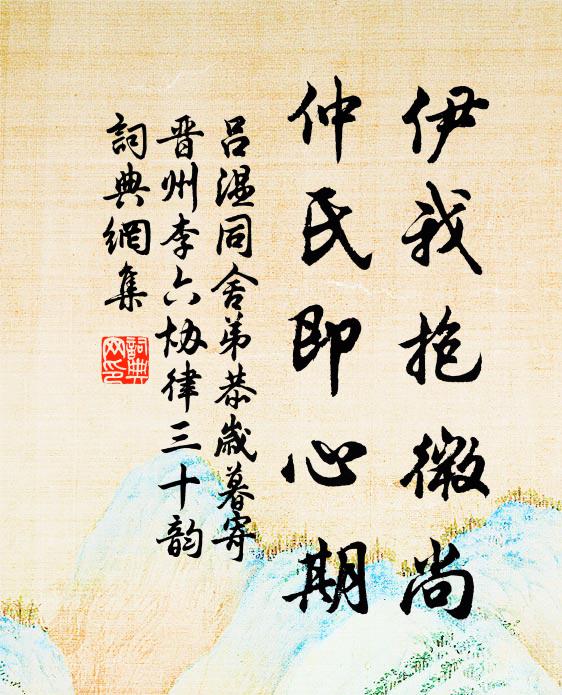 伊我抱微尚
仲氏即心期
吕温同舍弟恭岁暮寄
晋州李六协律三十韵
詞典網集
詞典網印